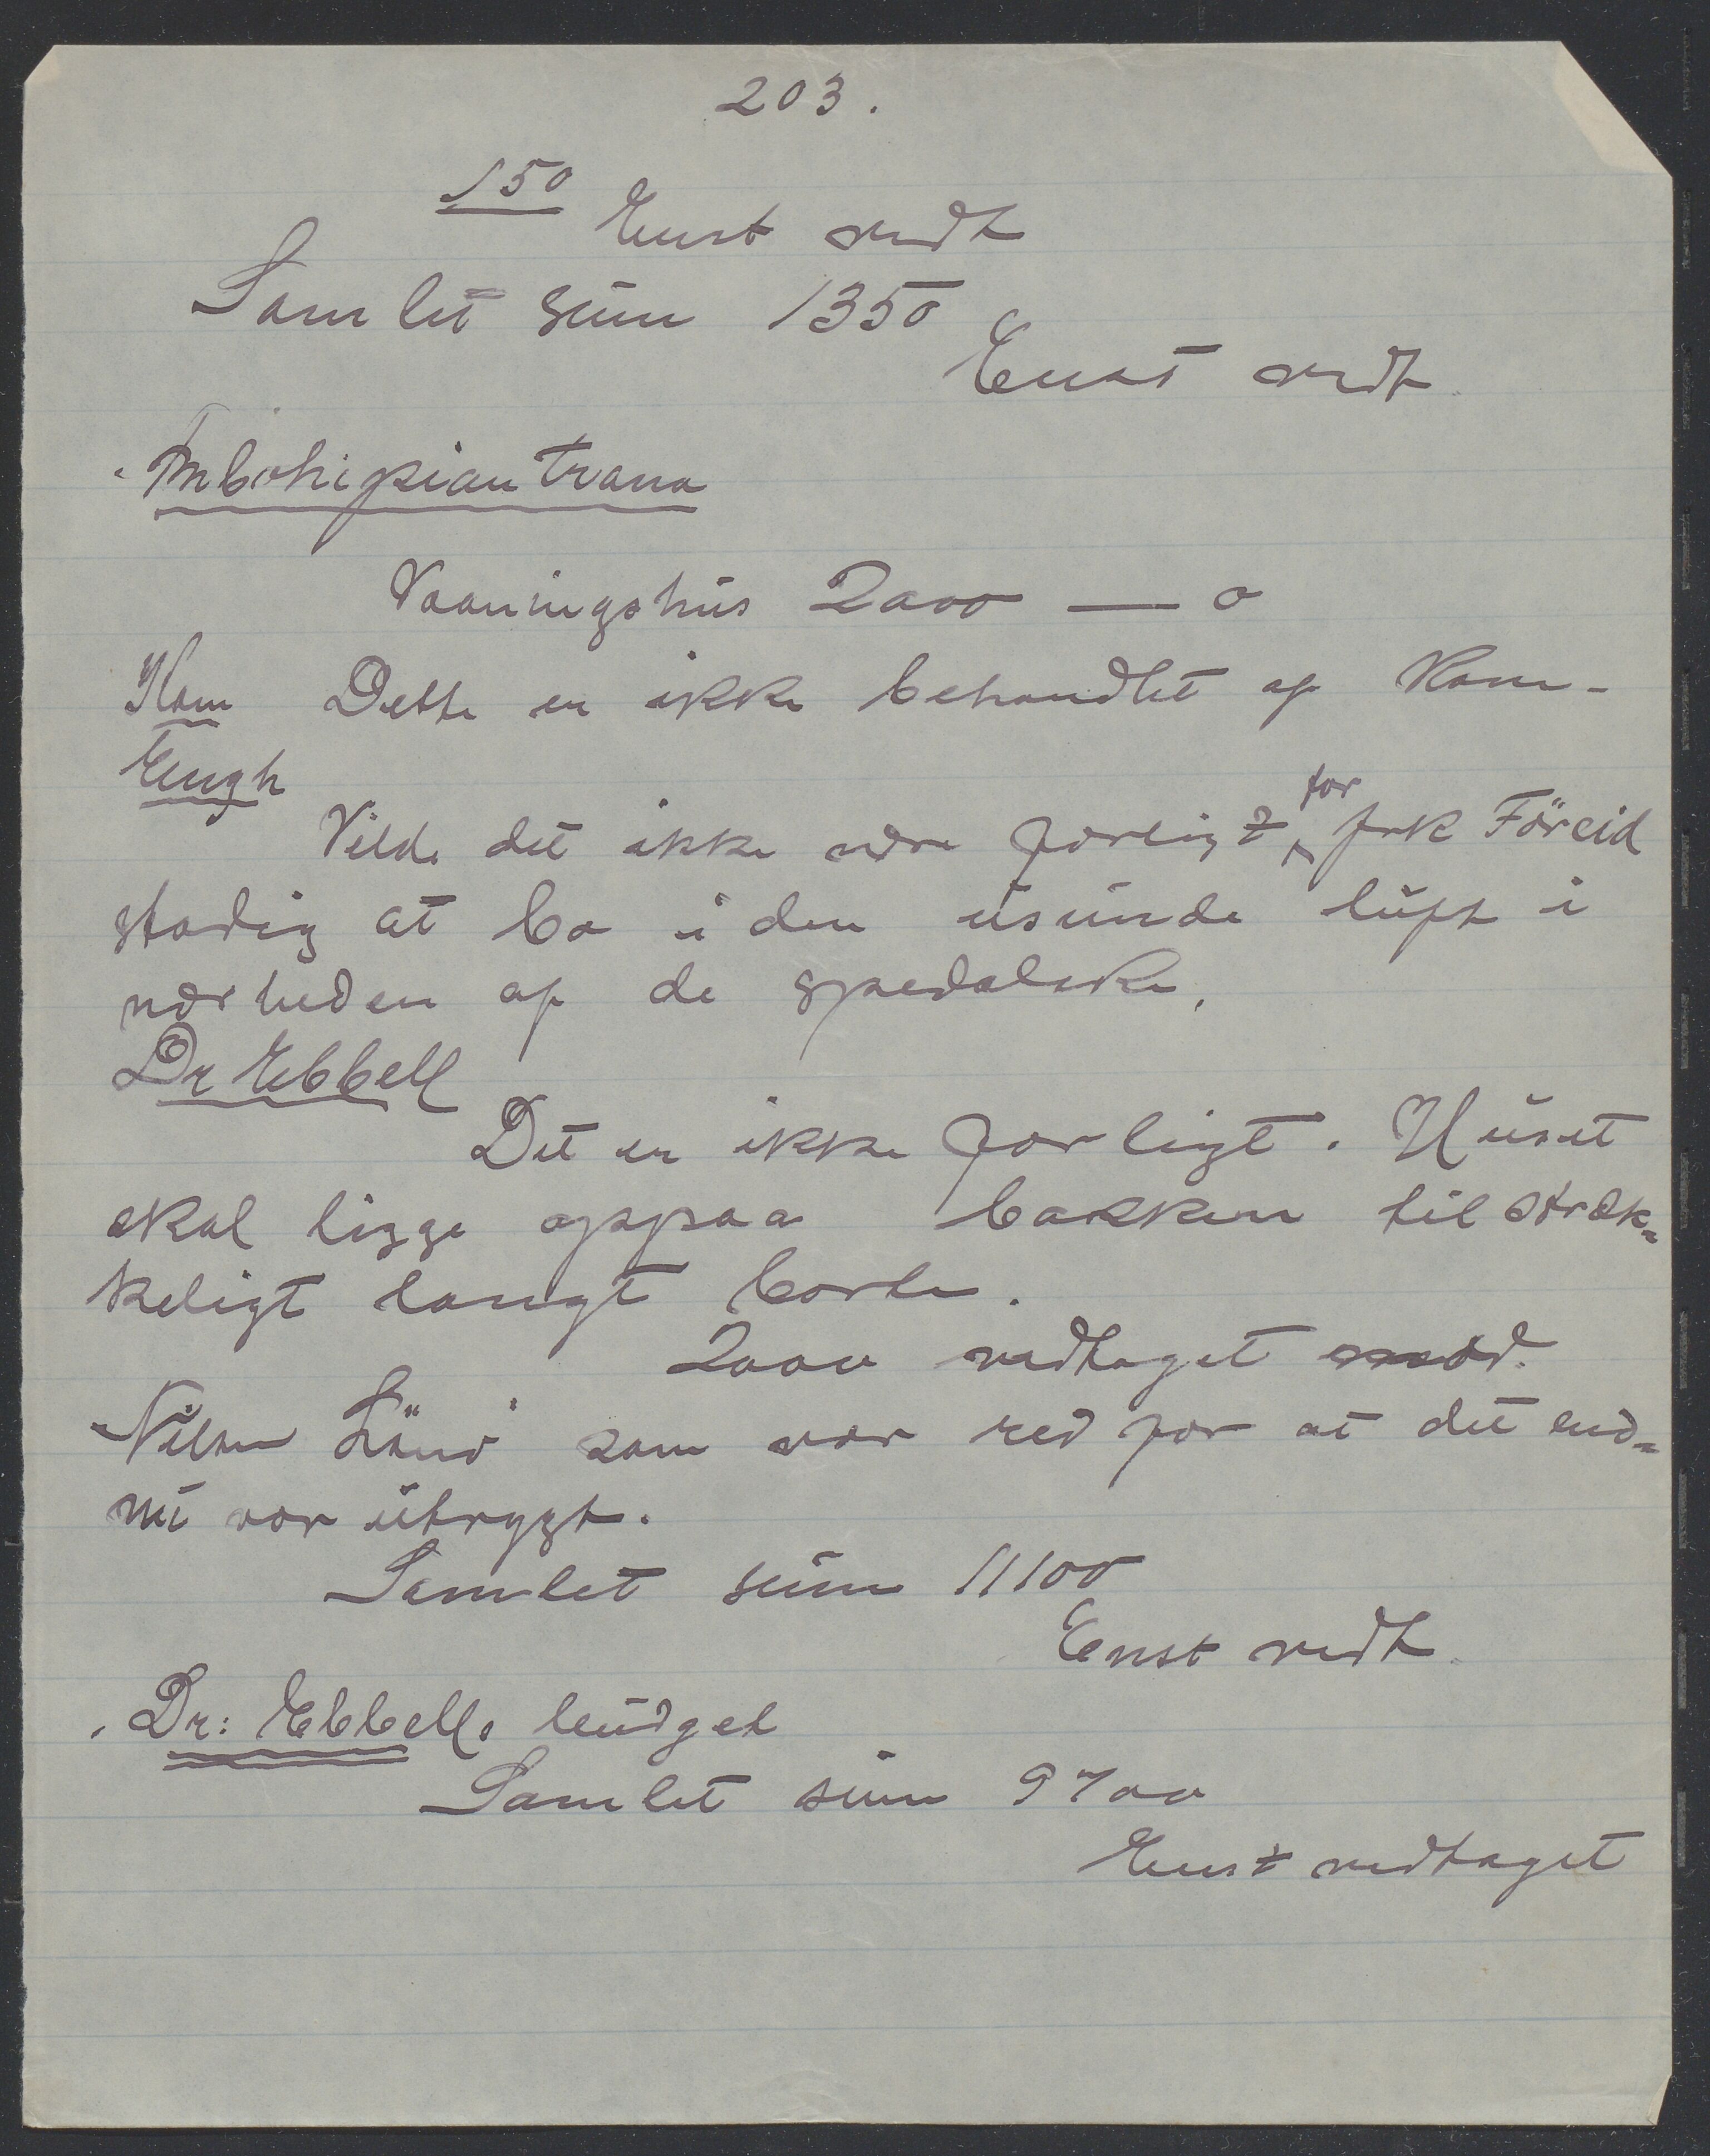 203.
150 Enst vedt
Samlet sum 1350
Enst vedt
Mbohipiantrana
Vaaningshus 2000 — 0
Kom Dette er ikke behandlet af Kom-
Engh
Vilde det ikke være farligt for frk Föreid
stadig at bo i den usunde luft i
nærheden af de spedalske.
Dr Ebbell
Det er ikke farligt. Huset
skal ligge oppaa bakken tilstræk=
keligt langt borte.
2000 vedtaget mod.
Nilsen Lund som var red for at det end=
nu var utrygt.
Samlet sum 11100
Enst vedt.
Dr: Ebbells budget
Samlet sum 9700
Enst vedtaget